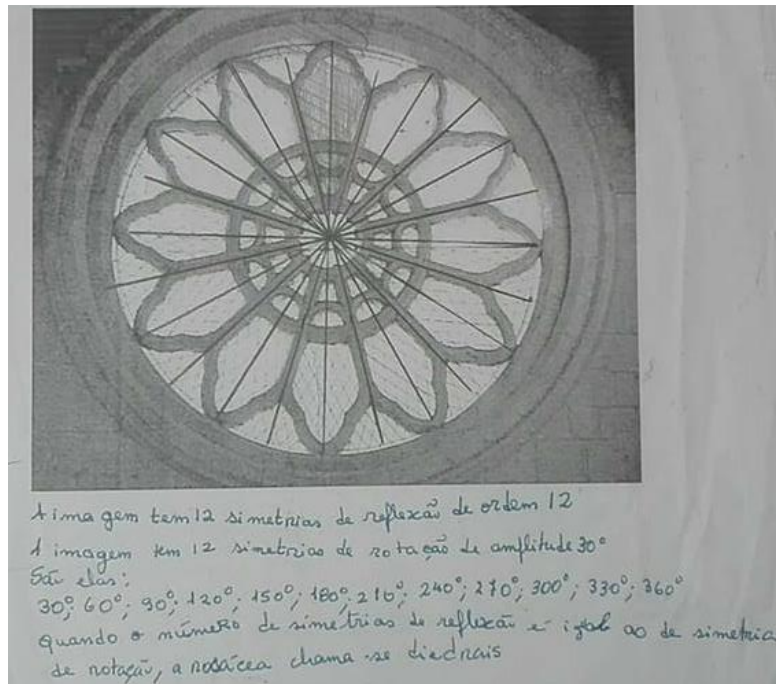 A imagem tem 12 simetrias de reflexão de ordem 12
A imagem tem 12 simetrias de rotação de amplitude 30°
São elas:
30°; 60°; 90°; 120°; 150°; 180°; 210°; 240°; 270°; 300°; 330°; 360°
Quando o número de simetrias de reflexão é igual ao de simetria
de rotação, a rosácea chama-se diedrais